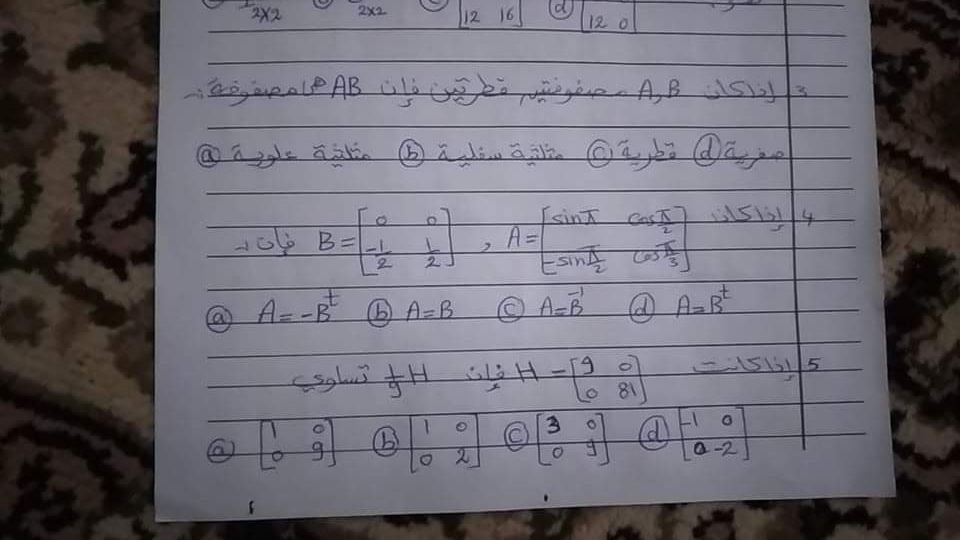 2x2 2x2 [12 16] ⓓ [12 0]
3 إذا كان A,B مصفوفتين قطريتين فإن AB هي مصفوفة
ⓐ مثلثية علوية ⓑ مثلثية سفلية ⓒ قطرية ⓓ صفرية
4 إذا كان A = [sin π cos π/2 ; -sin π/2 cos π/3] , B = [0 0 ; -1/2 1/2] فإن
ⓐ A = -Bᵗ ⓑ A = B ⓒ A = B⁻¹ ⓓ A = Bᵗ
5 إذا كانت H = [9 0 ; 0 81] فإن 1/9 H تساوي
ⓐ [1 0 ; 0 9] ⓑ [1 0 ; 0 2] ⓒ [3 0 ; 0 9] ⓓ [-1 0 ; 0 -2]